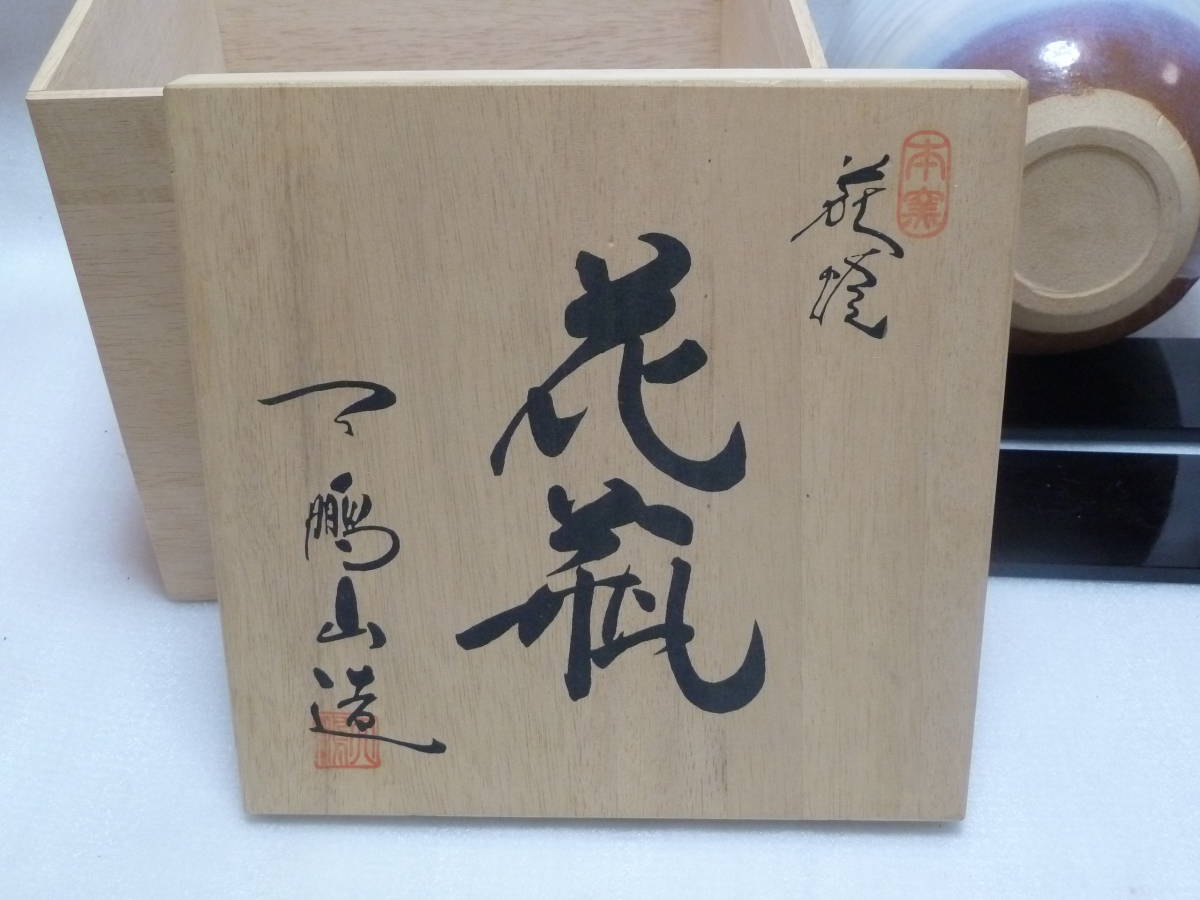 本窯
萩焼
花瓶
鵬山造